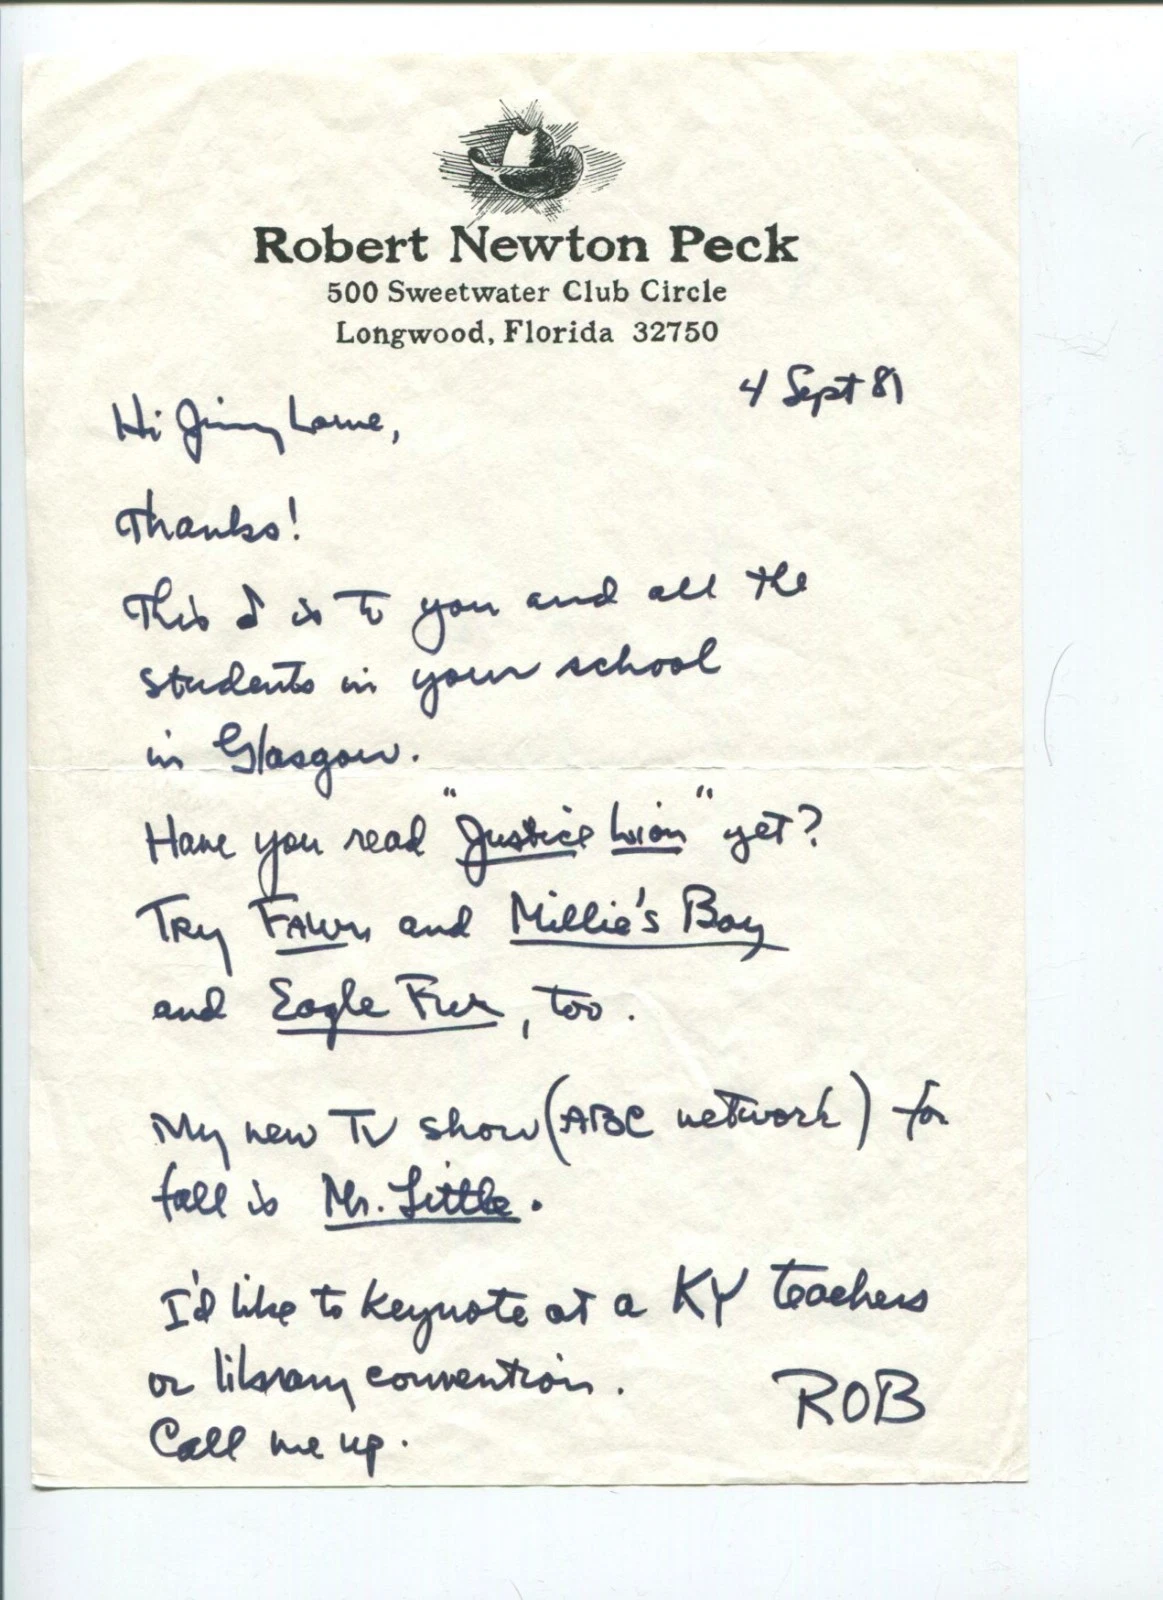 Robert Newton Peck
500 Sweetwater Club Circle
Longwood, Florida 32750
4 Sept 81
Hi Jimmy Lowe,
Thanks!
This ♪ is to you and all the
students in your school
in Glasgow.
Have you read "Justice Lion" yet?
Try Fawn and Millie's Boy
and Eagle Fur, too.
My new TV show (ABC network) for
fall is Mr. Little.
I'd like to keynote at a KY teachers
or library convention.
ROB
Call me up.